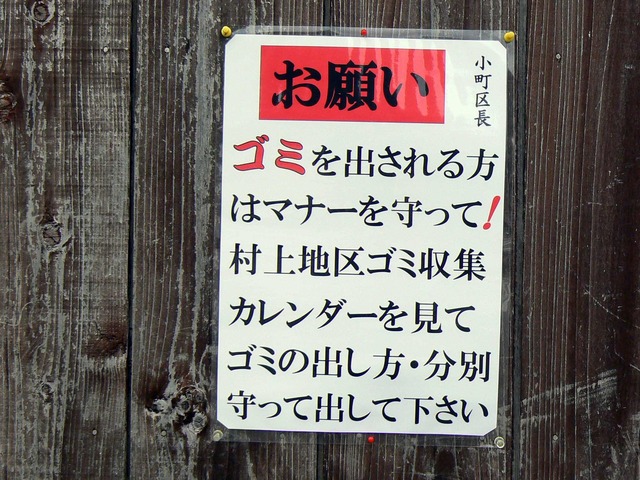 お願い
小町区長
ゴミを出される方
はマナーを守って!
村上地区ゴミ収集
カレンダーを見て
ゴミの出し方・分別
守って出して下さい